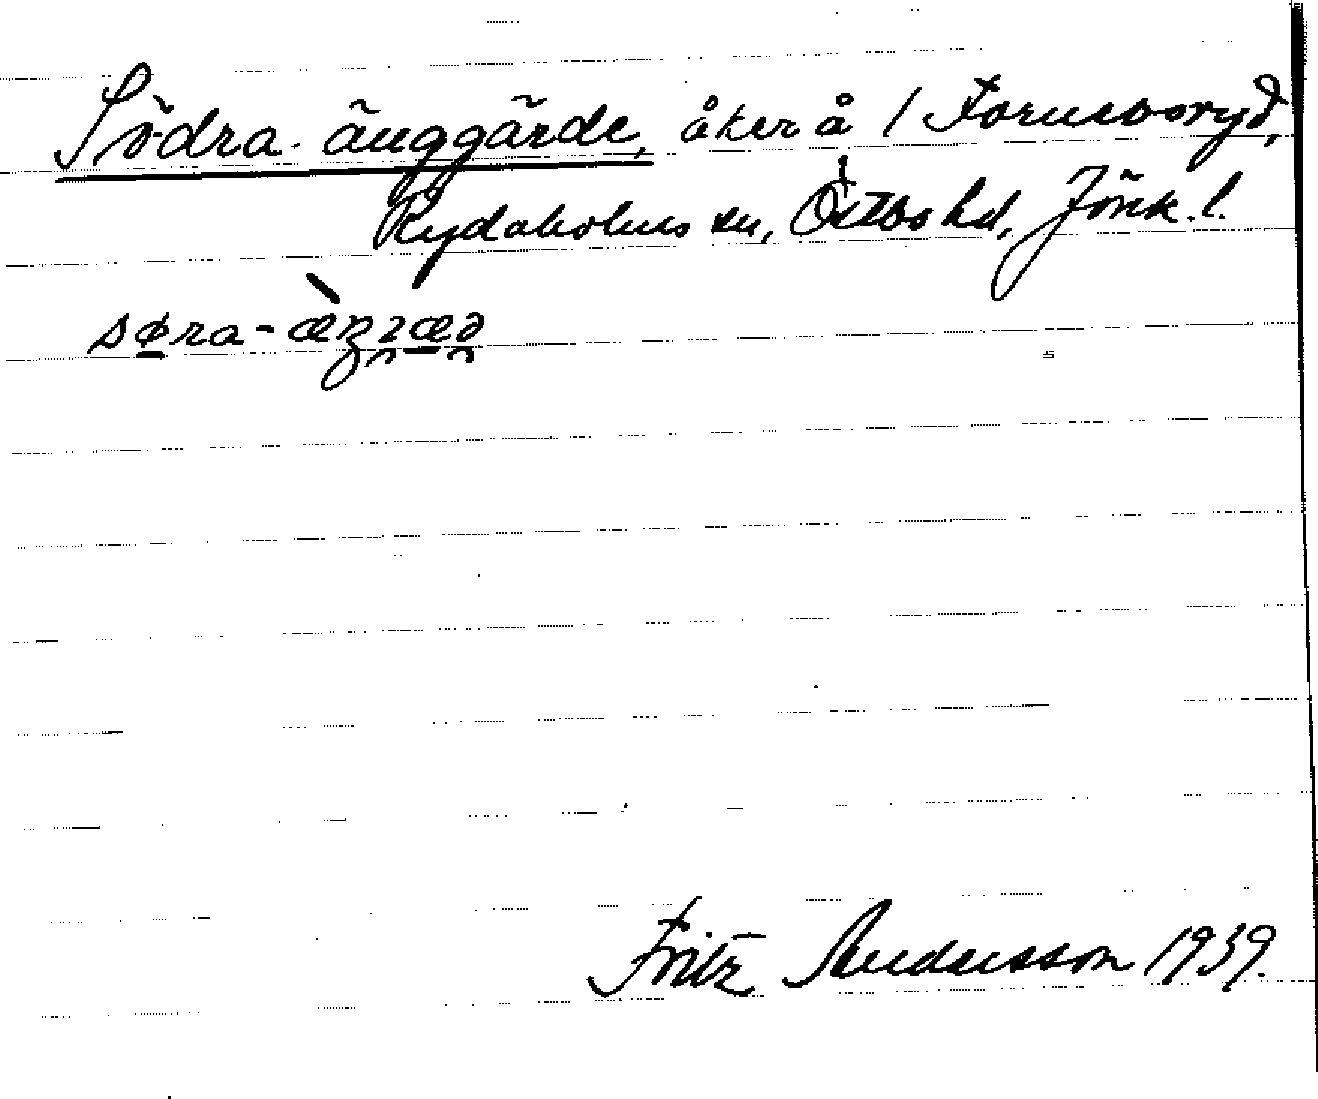 Södra änggärde, åker å / Fornebosryd,
Rydaholms sn, Östbo hd, Jönk. l.
Fritz Andersson 1939.